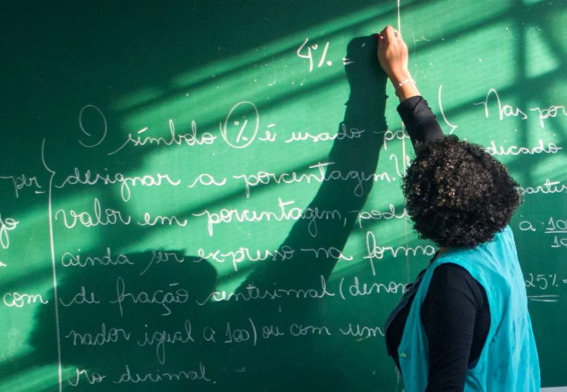 4% =
O símbolo % é usado pa
designar a porcentagem.
valor em porcentagem, pode
ainda ser expresso na forma
de fração centesimal (denomi
nador igual a 100) ou com um
ro decimal.
com
Nas por
dicado
a. 10
25% =